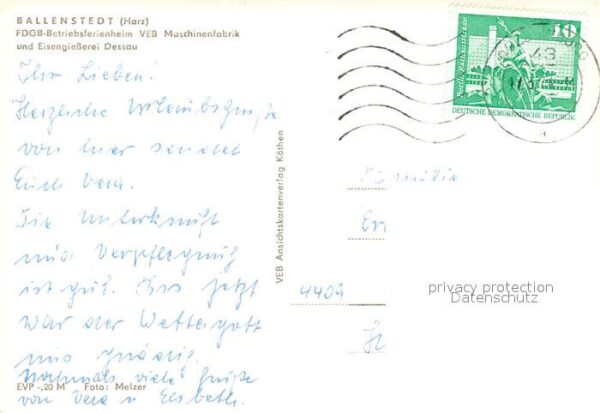 BALLENSTEDT (Harz)
FDGB-Betriebsferienheim VEB Maschinenfabrik
und Eisengießerei Dessau
Ihr Lieben!
Herzliche Urlaubsgrüße
von hier sendet
Euch Vera.
Die Unterkunft
und Verpflegung
ist gut. Bis jetzt
war der Wettergott
uns gnädig.
Nochmals viele Grüße
von Vera u Elsbeth.
EVP -,20 M Foto: Melzer
VEB Ansichtskartenverlag Köthen
10
Berlin, Rathausstraße
DEUTSCHE DEMOKRATISCHE REPUBLIK
43
Familie
Er
4409
privacy protection
Datenschutz